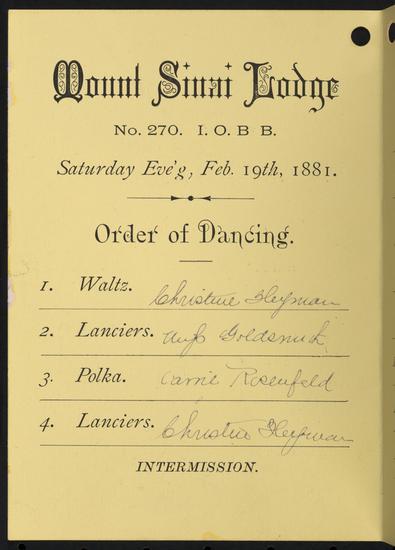 Mount Sinai Lodge
No. 270. I. O. B B.
Saturday Eve'g, Feb. 19th, 1881.
Order of Dancing.
1. Waltz. Christine Heyman
2. Lanciers. Goldsmith
3. Polka. Carrie Rosenfeld
4. Lanciers. Christine Heyman
INTERMISSION.